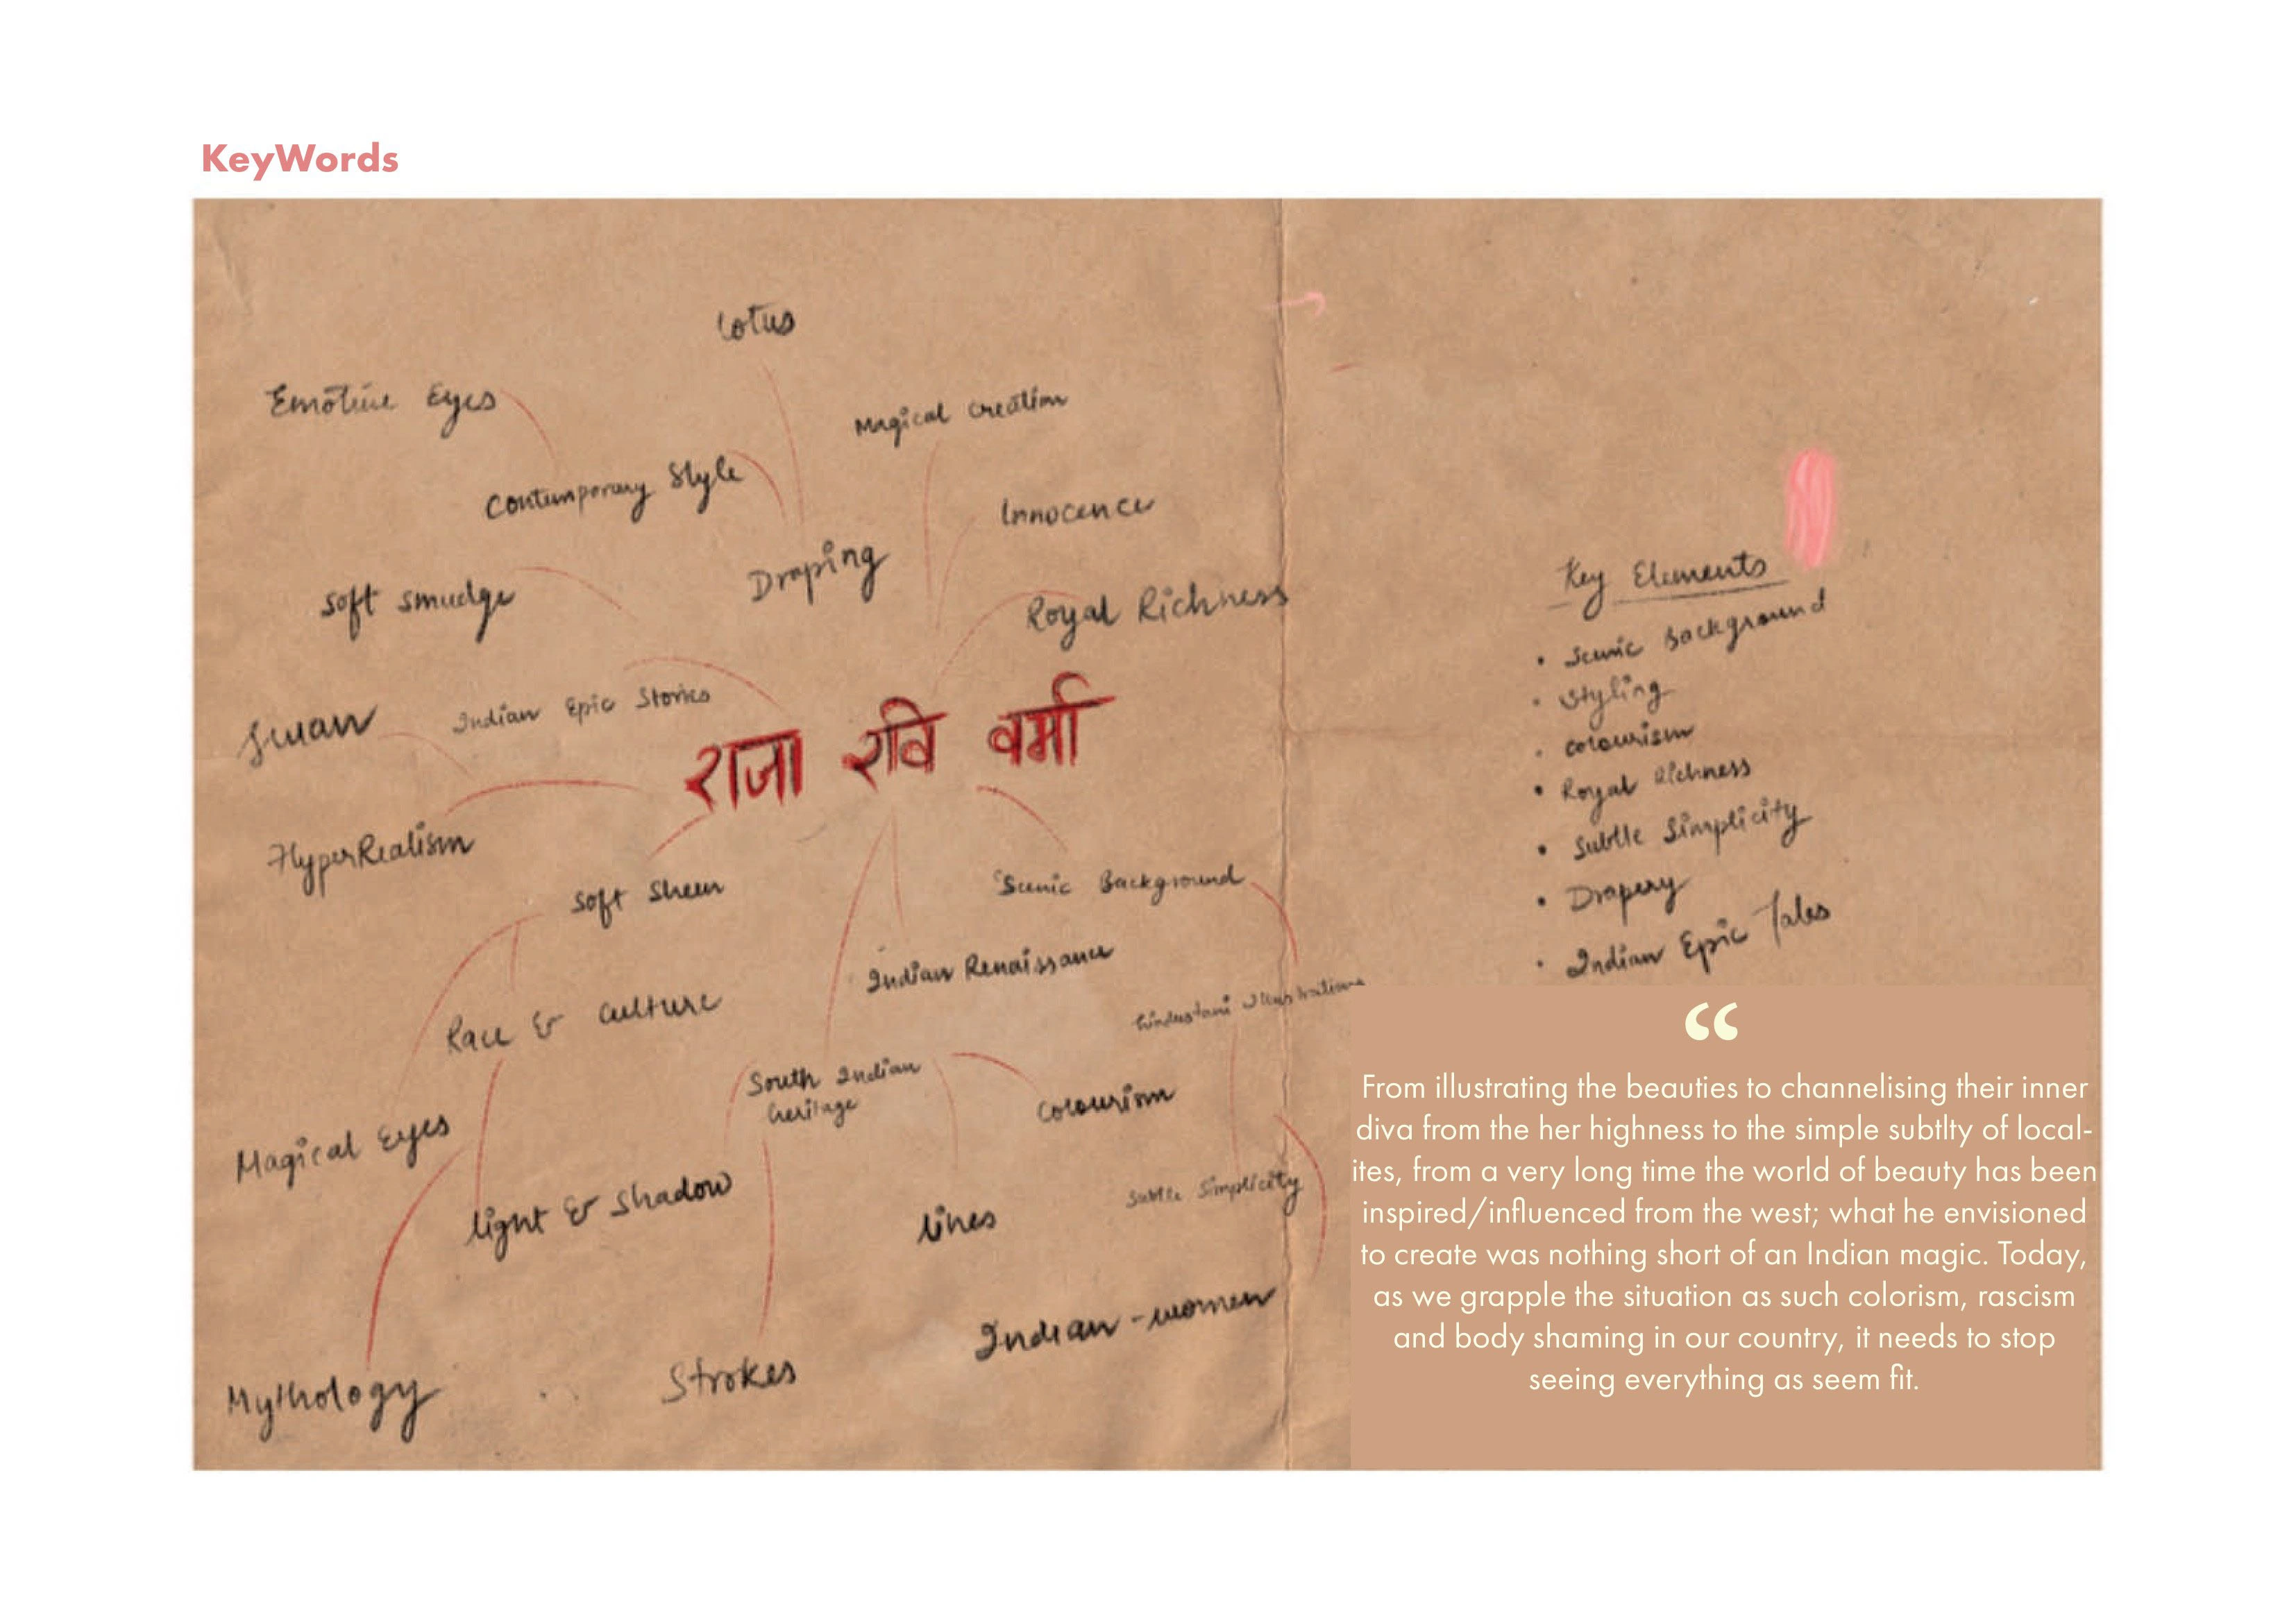 KeyWords
Lotus
Emotive Eyes
Magical Creation
Contemporary Style
Innocence
Draping
Soft smudge
Royal Richness
Swan
Indian Epic Stories
राजा रवि वर्मा
HyperRealism
Soft Sheen
Scenic Background
Indian Renaissance
Race & Culture
hindustani Illustrations
South Indian
heritage
Colourism
Magical Eyes
light & Shadow
lines
Subtle Simplicity
Indian-women
Strokes
Mythology
Key Elements
• Scenic Background
• Styling
• Colourism
• Royal Richness
• Subtle Simplicity
• Drapery
• Indian Epic Tales
“
From illustrating the beauties to channelising their inner
diva from the her highness to the simple subtlty of local-
ites, from a very long time the world of beauty has been
inspired/influenced from the west; what he envisioned
to create was nothing short of an Indian magic. Today,
as we grapple the situation as such colorism, rascism
and body shaming in our country, it needs to stop
seeing everything as seem fit.